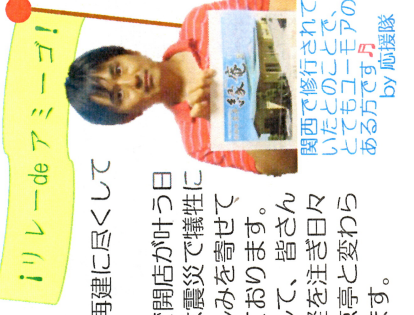 ¡リレーdeアミーゴ!
再建に尽くして
開店が叶う日
震災で犠牲に
みを寄せて
おります。
て、皆さん
を注ぎ日々
亭と変わら
ます。
関西で修行されて
いたとのことで、
とてもユーモアの
ある方です♬
by 応援隊